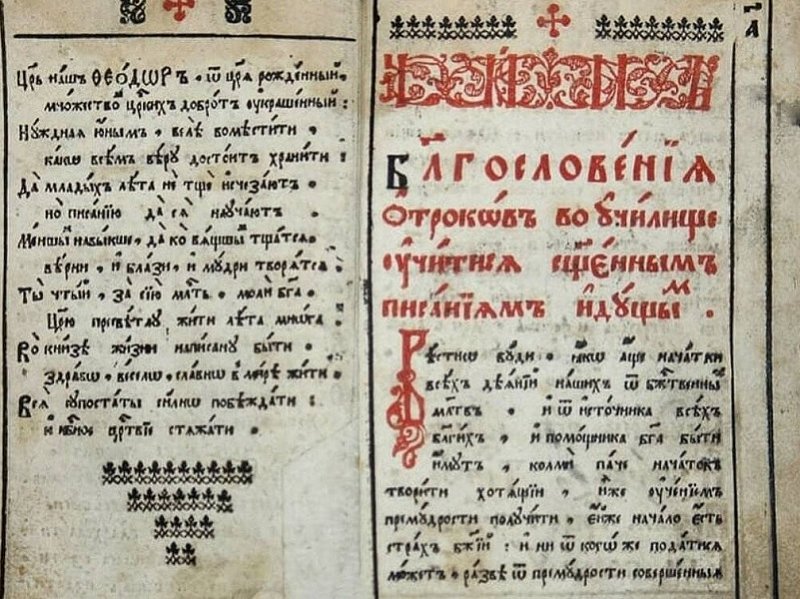 Цр҃ь нашъ ѲЕО́ДѠРЪ , ѿ цр҃ѧ рожде́нный,
мно́жество́ цр҃кихъ доброт ѹкраше́нный :
Ну́ждная ю҆ным , велѣ̀ вомѣсти́ти ,
какѡ всѣ́м вѣ́ру досто́ит храни́ти :
Да̀ млады́х лѣ́та не тщѐ и҆счеза́ют ,
но писа́нию да̀ сѧ̀ наꙋча́ют .
Ме́ншыѧ навы́кше , да̀ ко вѧ́щшым тща́тсѧ ,
вѣ́рни , и҆ бла́зи , и҆ мꙋ́дри творѧ́тсѧ .
Ты̀ чты́й , за̀ сїю̀ мл҃тъ , молѝ бг҃а .
Цр҃ю̀ пресвѣ́тлꙋ жи́ти лѣ́та мно́га .
Во кни́зѣ жи́зни напи́санꙋ бы́ти ,
здра́вѡ , ве́селѡ , сла́внѡ в ми́рѣ жи́ти .
Всѧ̀ сꙋпоста́ты си́лнѡ побѣжда́ти :
и нб҃ное црⷭ҇твїе стѧжа́ти .
а҃
БЛГⷭ҇ОСЛОВЕ́НЇѦ
О҆́трокѡвъ во ᲂу҆чи́лище
ᲂу҆чи́тисѧ сщ҃е́нным
писа́нїѧмъ и҆дꙋ́щым .
Ре́стнѡ бꙋди , ꙗ҆́кѡ а҆́ще нача́тки
всѣ́х дѣѧ́нїй на́ших ѿ бж҃е́ственных
мл҃твъ , и҆ ѿ и҆сто́чника всѣ́х
благи́х , и҆ помо́щника бг҃а бы́ти
и҆́мꙋт , колмѝ па́че нача́ток
твори́ти хотѧ́щїи , и҆̀же ᲂу҆че́нїем
премꙋ́дрости полꙋчи́ти , е҆ѧ́же нача́ло е҆́сть
стра́х бж҃їй : и҆ ни ѿ когѡ́же пода́тисѧ
мо́жет , ра́звѣ ѿ премꙋ́дрости соверше́нныѧ